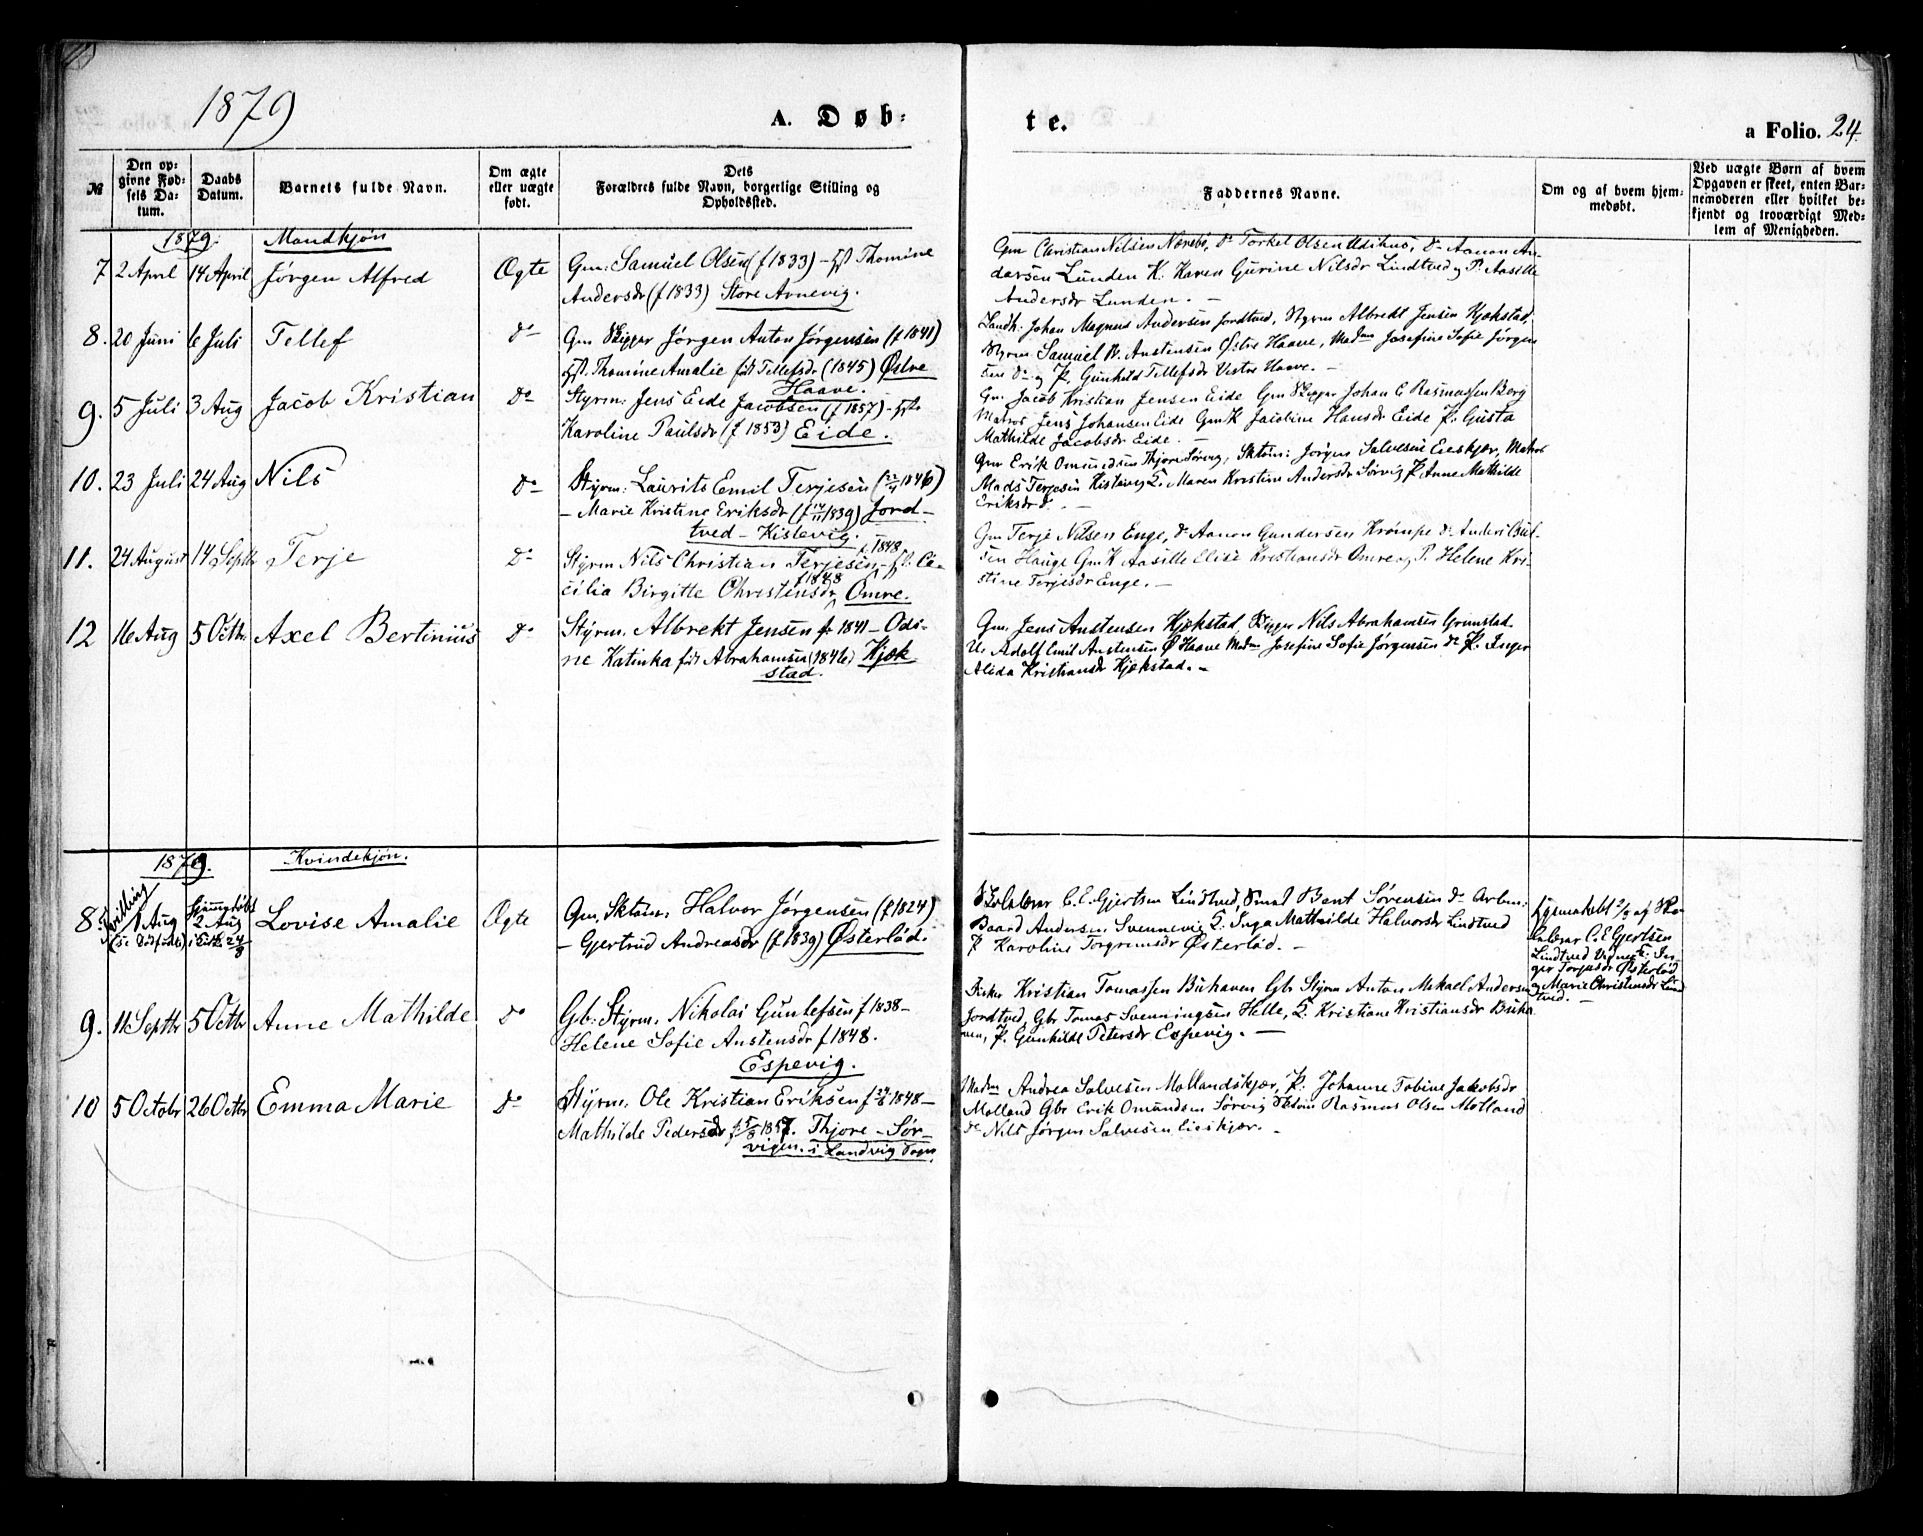 1879
A. Døb-
te.
a Folio. 24.
№
Den op-
givne Fød-
sels Da-
tum.
Daabs
Datum.
Barnets fulde Navn.
Om ægte
eller uægte
født.
Dets
Forældres fulde Navn, borgerlige Stilling og
Opholdssted.
Faddernes Navne.
Om og af hvem hjem-
medøbt.
Ved uægte Børn af hvem
Opgaven er skeet, enten Bar-
nemoderen eller hvilket be-
kjendt og troværdigt Med-
lem af Menigheden.
1879. Mandkjøn
7 2 April 14 April Jørgen Alfred Ægte Gm: Samuel Olsen (f 1833) – Thomine
Andersdr (f 1833) Store Arnevig.
Gm Christian Nilsen Nærebø, do Torkel Olsen do Aanon An-
dersen Lunden K. Karen Gurine Nilsdr Lindtved og P. Aasille
Andersdr Lunden. –
8. 20 Juni 6 Juli Tellef do Gm Skipper Jørgen Anton Jørgensen (f 1841)
Thomine Amalie født Tellefsdr (1845) Østre
Haave.
Landh: Johan Magnus Andersen Jordtved, Styrm Albrekt Jensen Kjøkstad,
Styrm Samuel Austensen Østre Haave, Madm Josefine Sofie Jørgen
sen do og P. Gunhild Tellefsdr Vestre Haave. –
9. 5 Juli 3 Aug Jacob Kristian do Styrm: Jens Eide Jacobsen (f 1857) –
Karoline Paulsdr (f 1853) Eide.
Gm Jacob Kristian Jensen Eide Gm Skipper Johan C Rasmussen Borg
Matros Jens Johansen Eide GmK Jacobine Hansdr Eide P. Gusta
Mathilde Jacobsdr Eide. –
10. 23 Juli 24 Aug Nils do Styrm: Laurits Emil Terjesen (1846)
– Marie Kristine Eriksdr (f 1839) Jord-
tved – Kistevig.
Gm Erik Omundsen Thjore Sørvig, Sktøm: Jörgen Salvesen Eeskjær, Matros
Mads Terjesen Kistevig Maren Kristine Andersdr Sørvig P Anne Mathilde
Eriksdr do. –
11. 24 August 14 Septbr Terje do Styrm Nils Christian Terjesen f. 1848 – Ce-
cilia Birgitte Christensdr f 1848 Omre.
Gm Terje Nilsen Enge, do Aanon Gundersen Krømpe do Anders
sen Hauge GmK Aasille Elise Kristiansdr Omre og P. Helene Kri-
stine Terjesdr Enge. –
12 16 Aug 5 Octbr Axel Bertinius do Styrm. Albrekt Jensen f 1841 – Odi-
ne Katinka født Abrahamsen (1846) Kjøk
stad.
Gm. Jens Austensen Kjøkstad Skipper Nils Abrahamsen Grimstad
U. Adolf Emil Austensen Ø Haave Madm Josefine Sofie Jørgensen do P. Inger
Alida Kristiansdr Kjøkstad. –
1879. Kvindekjøn.
8. Tvilling 1 Aug Hjemmedøbt 2 Aug Lovise Amalie Ægte Gm, Sktøm. Halvor Jørgensen (f 1824)
– Gjertrud Andreasdr (f 1839) Østerlød.
Skolelærer C. E. Gjertsen Lindtved, Smed Bent Sørensen do Arbm:
Baard Andersen Svennevig Inga Mathilde Halvorsdr Lindtved
P Karoline Torgrimsdr Østerlød. –
Hjemmedøbt 2/8 af Sko-
lelærer C. E Gjertsen
Lindtved Vidner: In-
ger Torjusdr Østerlød
og Marie Christensdr Lind
tved. –
9. 11 Septbr 5 Octbr Anne Mathilde do Gb: Styrm. Nikolai Gunlefsen f 1838 –
Helene Sofie Austensdr f 1848.
Espevig.
Fisker Kristian Tomassen Buhaven Gb Styrm Anton Mekael Andersen
Jordtved, Gbr Tomas Svenningsen Helle, Kristiane Kristiansdr Buha
ven, P. Gunhilde Petersdr Espevig. –
10 5 Octobr 26 Octbr Emma Marie do Styrm. Ole Kristian Eriksen f 1848 –
Mathilde Pedersdr f 1857. Thjore – Sør-
vigen. i Landvig Sogn
Madm Andrea Salvesen Mollandskjær, P. Johanne Tobine Jakobsdr
Molland Gbr Erik Omundsen Sørvig Sktøm Rasmus Olsen Molland
do Nils Jørgen Salvesen Eeskjær. –